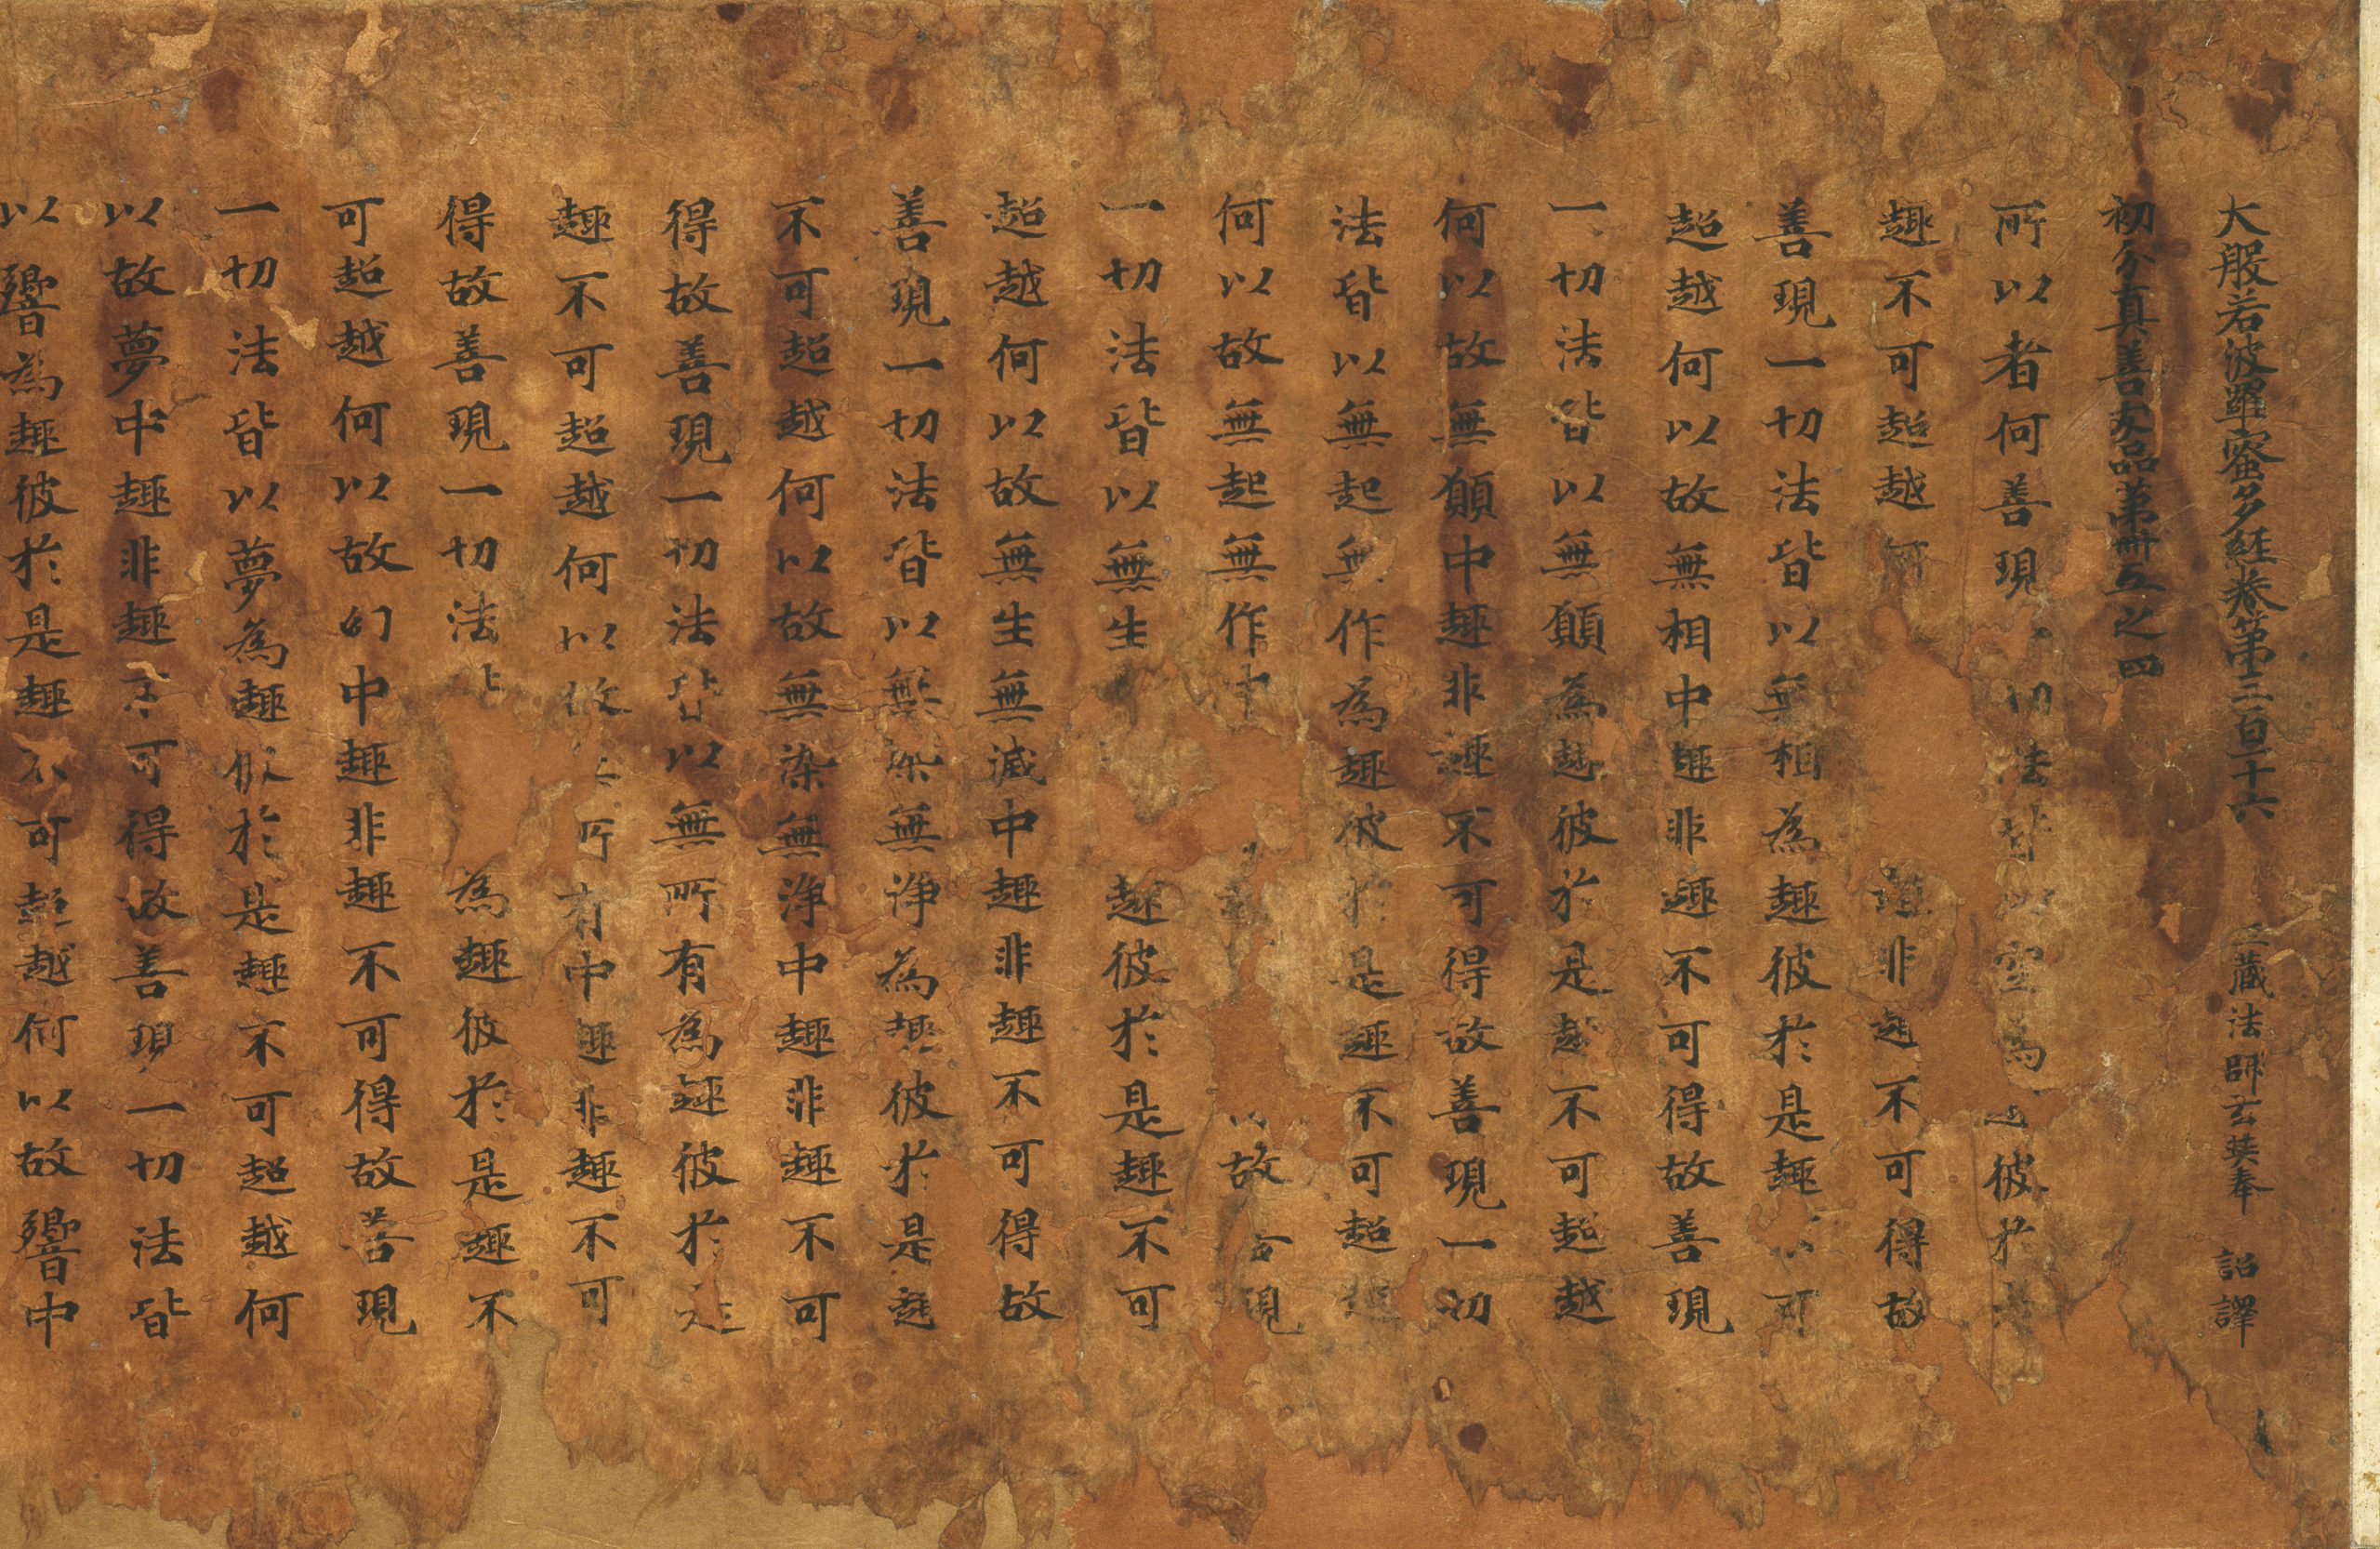 大般若波羅蜜多経卷第三百一十六 三藏法師玄奘奉 詔譯
初分真善友品第卌五之四
所以者何善現一切法皆以空為趣彼於是
趣不可超越何 趣非趣不可得故
善現一切法皆以無相為趣彼於是趣不可
超越何以故無相中趣非趣不可得故善現
一切法皆以無願為趣彼於是趣不可超越
何以故無願中趣非趣不可得故善現一切
法皆以無起無作為趣彼於是趣不可超越
何以故無起無作中趣 故善現
一切法皆以無生 趣彼於是趣不可
超越何以故無生無滅中趣非趣不可得故
善現一切法皆以無染無淨為趣彼於是趣
不可超越何以故無染無淨中趣非趣不可
得故善現一切法皆以無所有為趣彼於是
趣不可超越何以故無所有中趣非趣不可
得故善現一切法皆 為趣彼於是趣不
可超越何以故幻中趣非趣不可得故善現
一切法皆以夢為趣彼於是趣不可超越何
以故夢中趣非趣不可得故善現一切法皆
以響為趣彼於是趣不可超越何以故響中